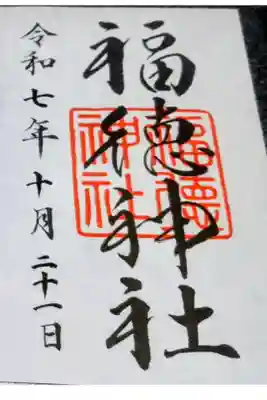 福徳神社
福德
神社
令和七年十月二十一日